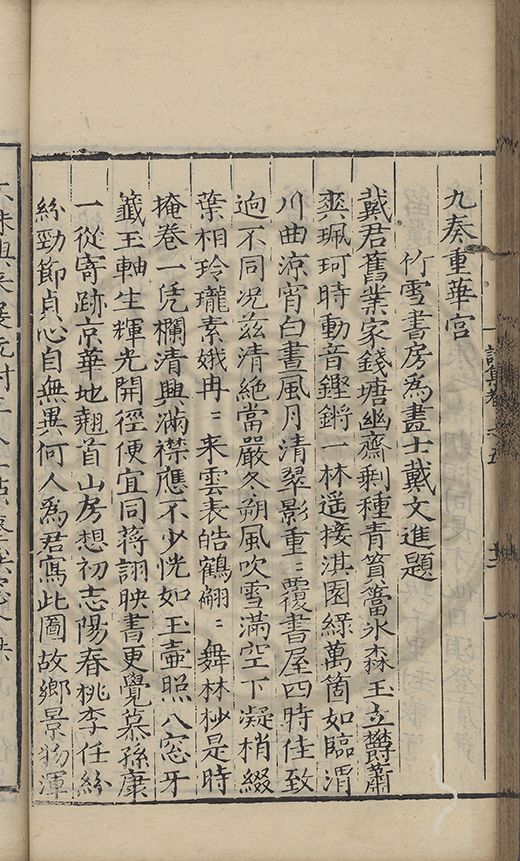 九奏重華宮
竹雪書房為畫士戴文進題
戴君舊業家錢塘幽齋剩種青篔簹氷森玉立欝蕭
爽珮珂時動音鏗鏘一林遥接淇園綠萬箇如臨渭
川曲涼宵白晝風月清翠影重〻覆書屋四時佳致
逈不同况茲清絶當嚴冬朔風吹雪滿空下凝梢綴
葉相玲瓏素娥冉〻来雲表皓鶴翩〻舞林杪是時
掩卷一凭欄清興滿襟應不少恍如玉壺照八窓牙
籤玉軸生輝光開徑便宜同蔣詡映書更覺慕孫康
一從寄跡京華地翹首山房想初志陽春桃李任紛
紛勁節貞心自無異何人為君寫此圖故鄉景物渾